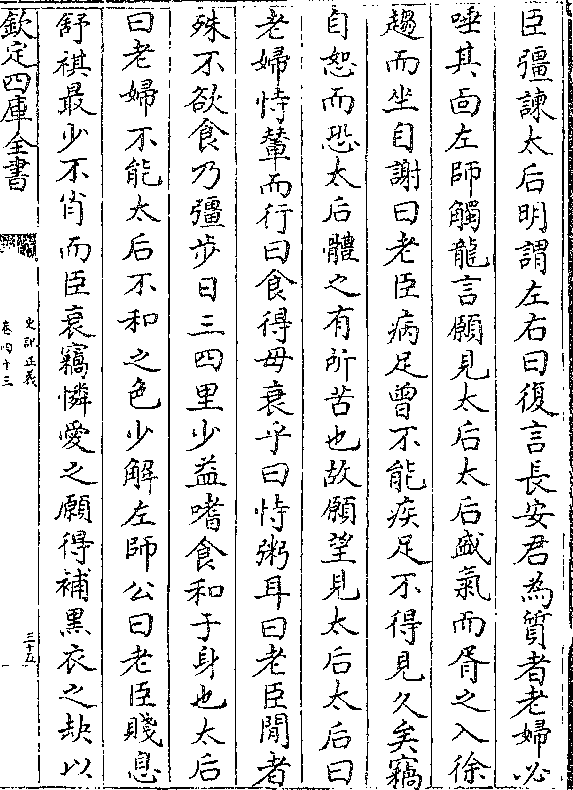 臣彊諫太后明謂左右曰復言長安君為質者老婦必
唾其面左師觸龍言願見太后太后盛氣而胥之入徐
趨而坐自謝曰老臣病足曾不能疾足不得見久矣竊
自恕而恐太后體之有所苦也故願望見太后太后曰
老婦恃輦而行曰食得毋衰乎曰恃粥耳曰老臣間者
殊不欲食乃彊步日三四里少益嗜食和于身也太后
曰老婦不能太后不和之色少解左師公曰老臣賤息
舒祺最少不肖而臣衰竊憐愛之願得補黑衣之缺以
欽定四庫全書
史記正義
卷四十三
三十五